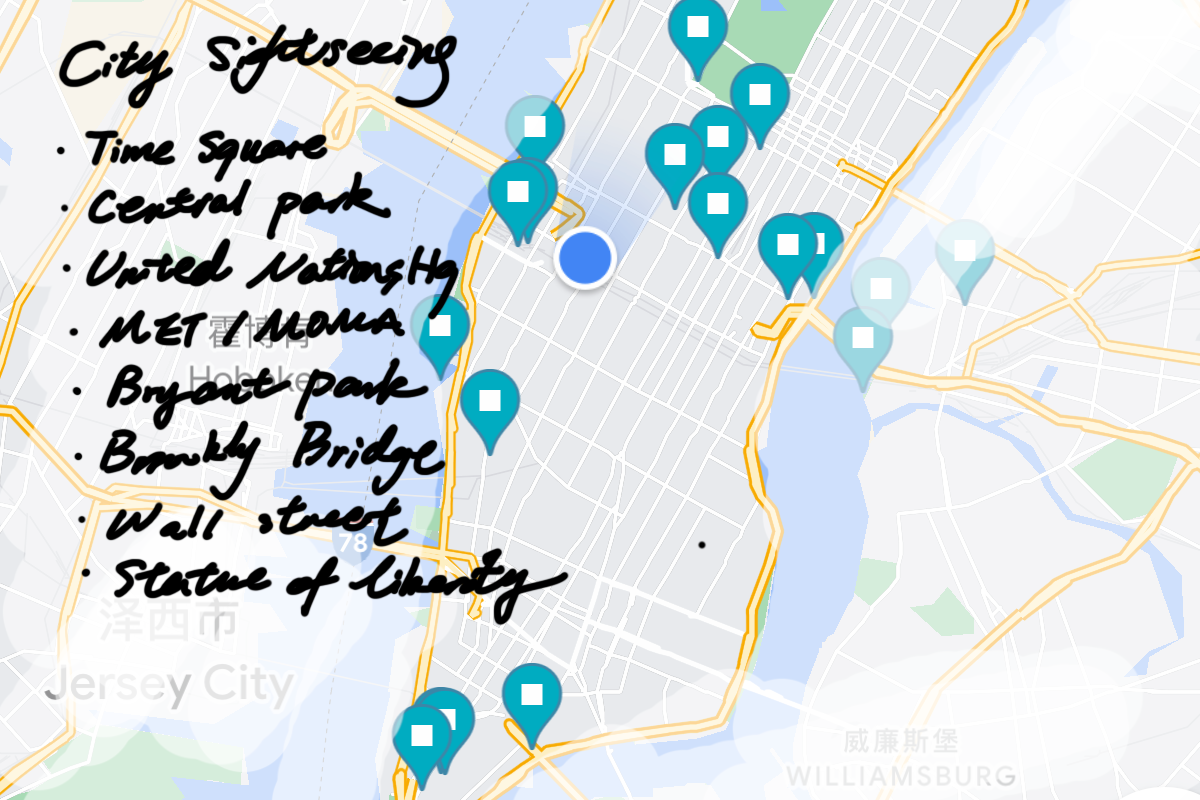 City Sightseeing
· Time Square
· Central park
· United Nations Hq
· MET / MOMA
霍博肯
Hoboken
· Bryant park
· Brookly Bridge
· Wall street
78
· Statue of liberty
泽西市
Jersey City
威廉斯堡
WILLIAMSBURG